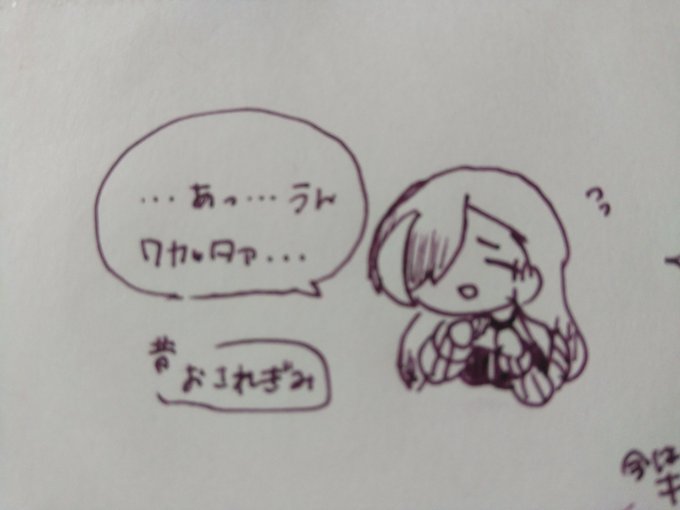 …あっ…うん
ワカッタァ...
昔
おコれぎみ
っっ
今は
キ